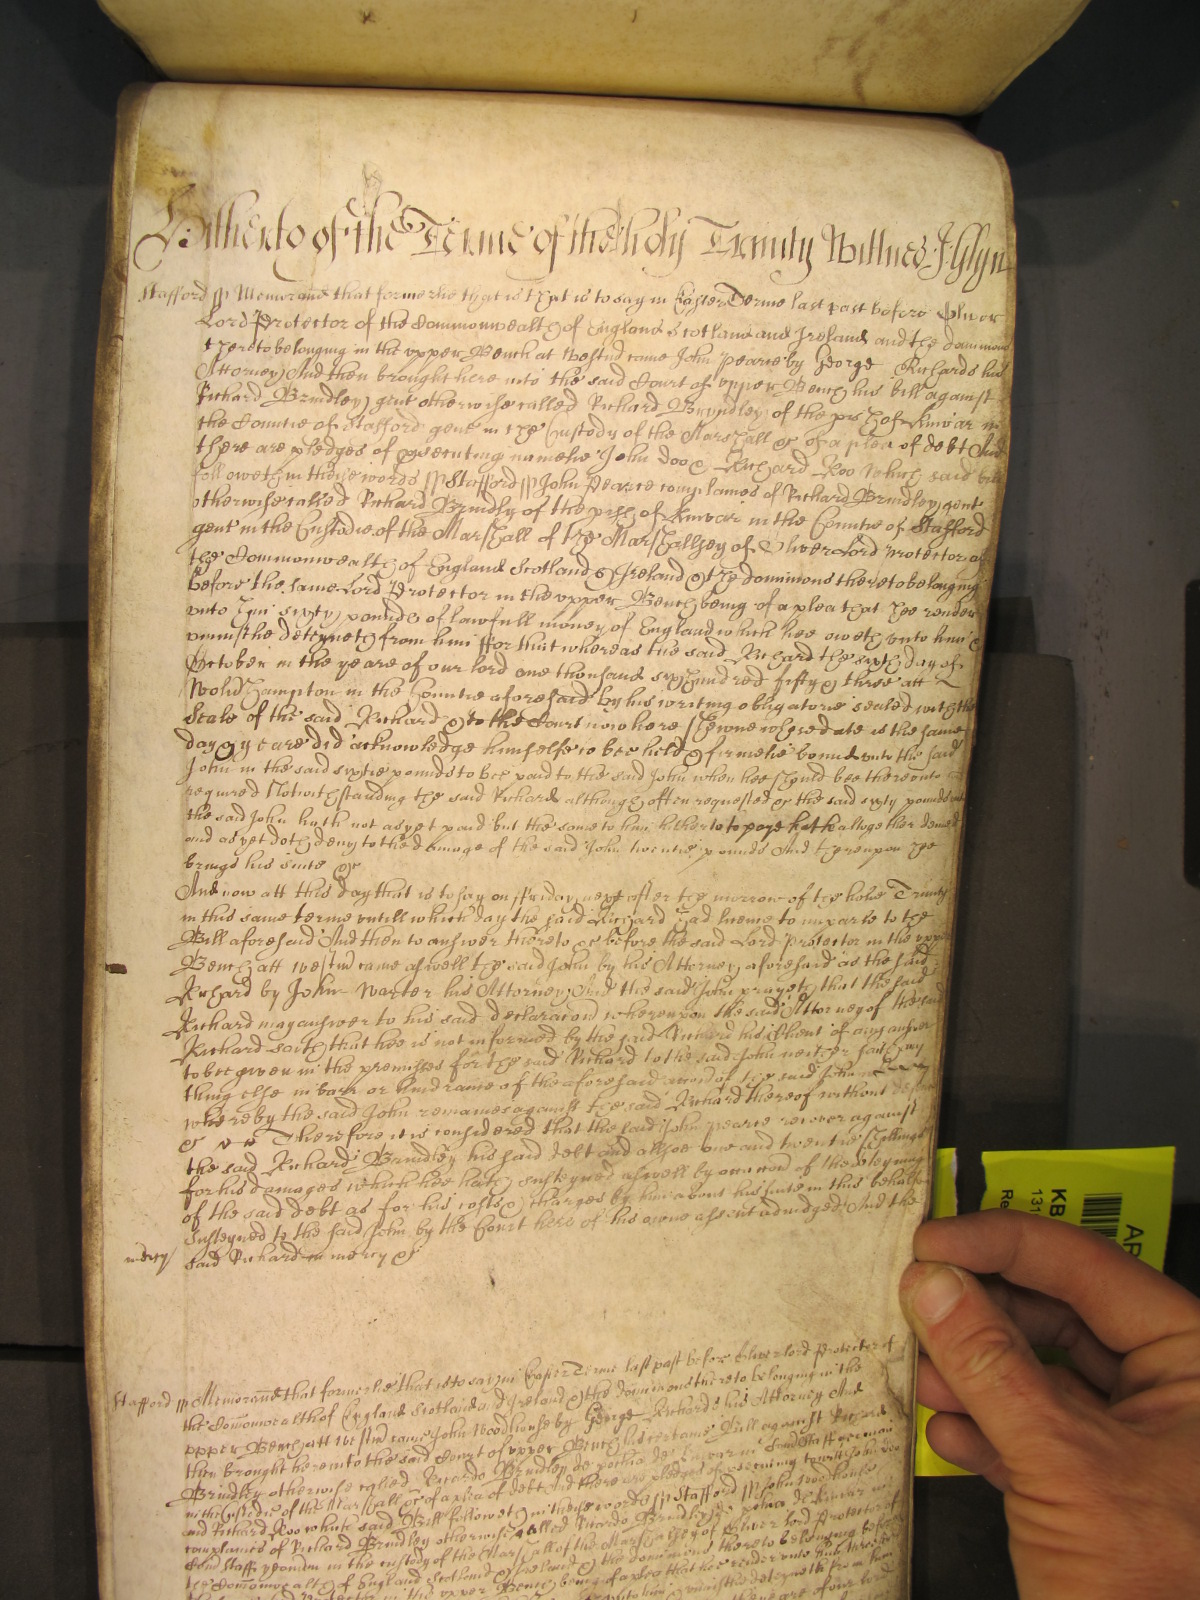 Hitherto of the Terme of the holy Trinity Witnes J Glyn
Stafford ss Memorand that formerlie that is that is to say in Easter Terme last past before Oliver
Lord Protector of the Commonwealth of England Scotland and Ireland and the dominions
thereto belonging in the upper Bench at Westm came John Pearce by George Richards his
Attorney And then brought here into the said Court of upper Bench his bill against
Richard Brindley gent otherwise called Richard Bryndley of the pish of Kinvar in
the Countie of Stafford gent in the Custody of the Marshall &c of a plea of debt And
there are pledges of psecuting namelie John Doo & Richard Roo which said bill
followeth in theise words ss Stafford ss John Pearce complaines of Richard Brindley gent
otherwise called Richard Brindly of the pish of Kinvar in the Countie of Stafford
gent in the Custodie of the Marshall of the Marshallsey of Oliver Lord Protector of
the Commonwealth of England Scotland & Ireland & the dominions thereto belonging
before the same Lord Protector in the upper Bench being of a plea that hee render
unto him sixty pounds of lawfull money of England which hee oweth unto him &
uniustlie deteyneth from him ffor that whereas the said Richard the sixth day of
October in the yeare of our lord one thousand six hundred fifty & three att
Wolverhampton in the Countie aforesaid by his writing obligatorie sealed with the
Seale of the said Richard & to the Court now here shewne whose date is the same
day & yeare did acknowledge himselfe to bee held & firmelie bound unto the said
John in the said sixtie pounds to bee paid to the said John when hee should bee thereunto
required Notwithstanding the said Richard although often requested &c the said sixty pounds
the said John hath not as yet paid but the same to him hitherto to paye hath altogether denied
and as yet doth deny to the damage of the said John twentie pounds And thereupon hee
brings his suite &c
And now att this day that is to say on ffriday next after the morrow of the holie Trinity
in this same terme untill which day the said Richard had licence to imparle to the
Bill aforesaid And then to answer thereto &c before the said Lord Protector in the upper
Bench att Westm came aswell the said John by his Attorney aforesaid as the said
Richard by John Warter his Attorney And the said John prayeth that the said
Richard may answer to his said declaracon whereupon the said Attorney of the said
Richard saith that hee is not informed by the said Richard his Client of any answer
to bee given in the premisses for the said Richard to the said John neither saith any
thing else in barr or hindrance of the aforesaid accon of the said John
whereby the said John remaines against the said Richard thereof without defence
&c Therefore it is considered that the said John Pearce recover against
the said Richard Brindley his said debt and allsoe one and twentie shillings
for his damages which hee hath susteyned aswell by occacon of the deteyning
of the said debt as for his costs & charges by him about his suite in this behalfe
susteyned to the said John by the Court here of his owne assent adiudged And the
mercy said Richard in mercy &c
Stafford ss Memorand that formerlie that is to say in Easter Terme last past before Oliver lord Protector of
the Comonwealth of England Scotland and Ireland & the dominions thereto belonging in the
upper Bench att Westm came John Woodhouse by George Richards his Attorney And
then brought here into the said Court of upper Bench his certaine Bill against Richard
Brindley otherwise called Ricardo Brindley de pochia de Kinvar in Com Staff yeoman
in the Custodie of the Marshall &c of a plea of debt And there are pledges of psecuting to witt John Doo
and Richard Roo which said Bill followeth in theise words ss Stafford ss John Woodhouse
complaines of Richard Brindley otherwise called Ricardo Brindley de pochia de Kinver in
Com Staff yeoman in the custody of the Marshall of the Marshalsey of Oliver lord Protector of
the Comonwealth of England Scotland & Ireland & the dominions thereto belonging before
the same Lord Protector in the upper Bench being of a plea that hee render unto him three
KB
131
AR